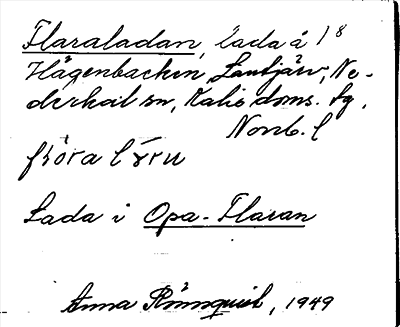 Flaraladan, lada å 18
Hägenbacken, Lantjärv, Ne-
derkalix sn, Kalix doms. tg,
Norrb. l
flöra
Lada i Opa-Flaran
Anna Rönnqvist, 1949